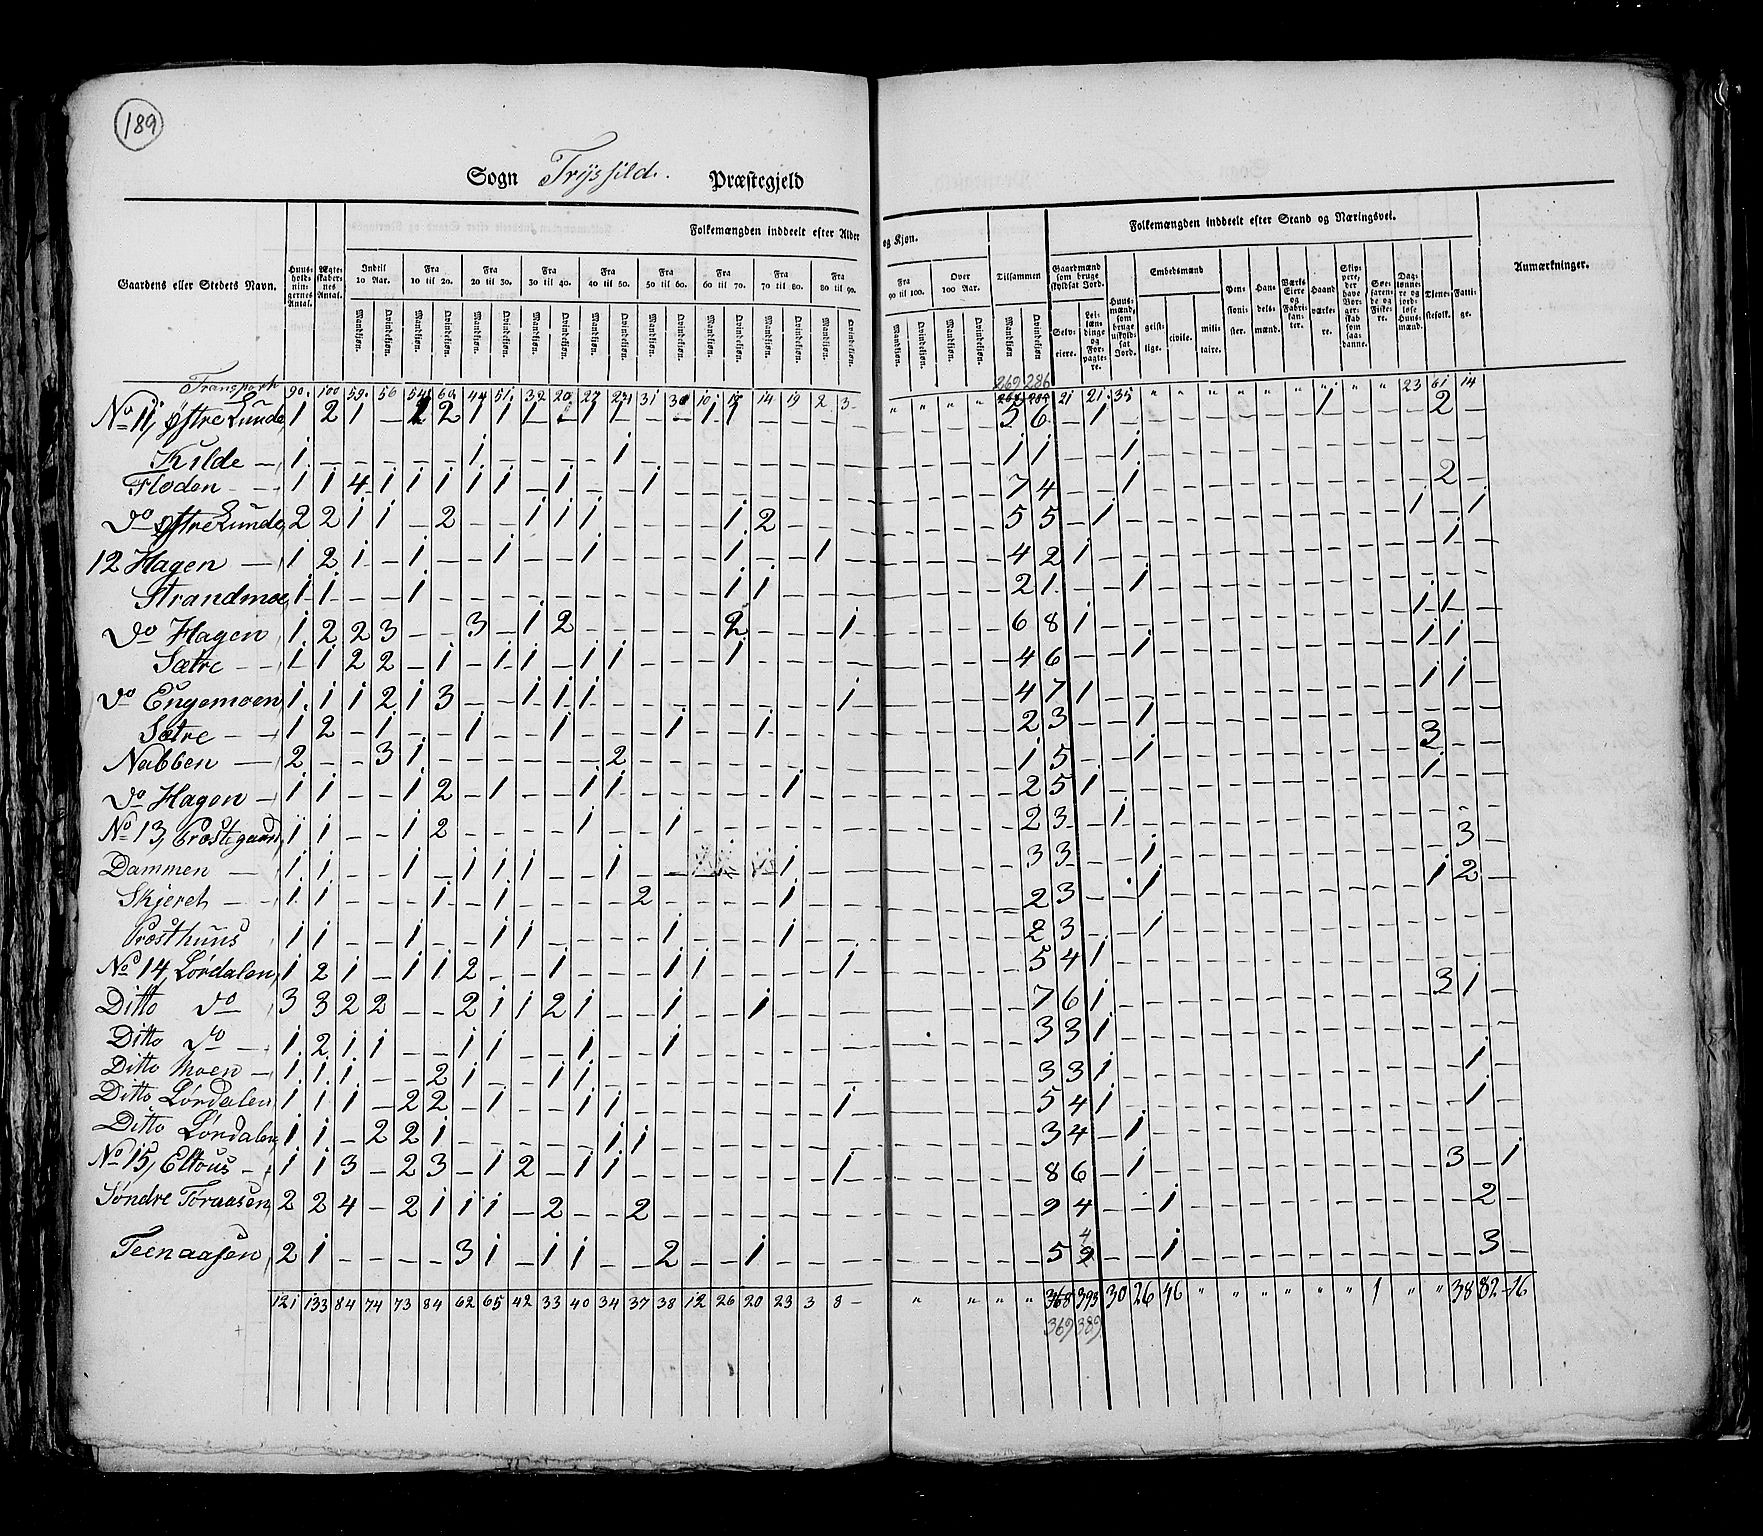 189
Sogn Trysild. Præstegjeld
Folkemængden inddeelt efter Alder og Kjøn.
Folkemængden inddeelt efter Stand og Næringsvei.
Gaardens eller Stedets Navn.
Huusholdningernes Antal.
Ægteskabernes Antal.
Indtil 10 Aar.
Fra 10 til 20.
Fra 20 til 30.
Fra 30 til 40.
Fra 40 til 50.
Fra 50 til 60.
Fra 60 til 70.
Fra 70 til 80.
Fra 80 til 90.
Fra 90 til 100.
Over 100 Aar.
Tilsammen
Mandkjøn. Qvindekjøn.
Gaardmænd som bruge skyldsat Jord.
Selveiere.
Leilændinge og Forpagtere.
Huusmænd, som bruge uskyldsat Jord.
Embedsmænd
geistlige. civile. militaire.
Pensionister.
Handelsmænd.
Værks Eiere og Fabrikanter.
Haandværkere.
Skippere, der have Borgerskab som saadanne.
Søefarende og Fiskere.
Dagslønnere og jordløse Huusmænd.
Tjenestefolk.
Fattige.
Anmærkninger.
Transport 90. 100 59. 56 54 60 44 51. 32 20 27 21 31 30 10. 19 14 19 2 3 - " " " " 269 286 21 21. 35 " " " " " " " " " 23 61 14
No 11, Østre Lunde, 1 2 1 - 1 2 1 1 1 - 1 1 - - 1 1 - - - - 5 6 - 1 - 1 2
Kilde 1 - - - - - 1 - - - - 1 - 1 1 - - 1
Floden 1 1 4 1 1 1 1 1 - 1 - - 1 - 7 4 - - 1 2 -
do Østre Lunde, 2 2 1 1 - 2 - - 1 1 1 - - - - 1 2 - 5 5 - 1 - 1 - 1
12 Hagen 1 2 1 - 1 - - 1 - - 1 - - - - 1 - - 1 - 4 2 1 - 1 -
Strandmoe, 1 1 - - 1 - 1 1 - 2 1 - - 1
do Hagen 1 2 2 3 - - 3 - 1 2 2 - - - 1 6 8 1 - 1 1
Sætre 1 1 2 2 - 1 - 1 1 - 1 1 - - - 1 - 4 6 - - 1 - 1 1
do Engemoen 1 1 1 2 1 3 - - 1 1 1 - 1 4 7 1 - 1 1
Sætre 1 2 - 1 - - 1 - - 1 - - - 1 - - 1 - 2 3 - - 1 -
Nabben 2 - - 3 1 - - - - - - 2 - 1 5 - - 1 - 3
do Hagen 1 1 - - 1 2 - 1 - - 1 1 - - - - - 1 - 2 5 1 - 1
No 13, Præstegaard, 1 1 - - 1 2 - - - - 1 - - 1 - 2 3 - 1 -
Dammen 1 1 - - 1 - 1 1 1 - - 1 - - 1 - 3 3 - - 1 - 3 -
Skjeret 1 1 - - - 1 - 1 - - - - 2 - - - - 1 - 2 3 - - 1 - 1 2 -
Præsthuus 1 1 - - 1 - - 1 1 - - - - 1 - - - 1 - 2 3 - - 1 -
No 14, Lørdalen, 1 2 1 - 1 1 2 - - 1 - - - 1 1 - - - - 1 5 4 1 -
Ditto do 3 3 2 2 - - 2 1 1 2 1 - - 1 - - 1 - 7 6 1 - 3 1 -
Ditto do 1 2 1 1 - - 1 1 - - 1 - - 1 - 3 3 1 -
Ditto Moen 1 1 1 - - 2 1 - - 1 1 - 3 3 1 - 1 -
Ditto Lørdalen 1 1 1 - 2 2 - 1 - - 1 1 - 1 5 4 1 - 1 -
Ditto Lørdalen, 1 1 - 2 2 1 - - - - - 1 1 - 3 4 - 1 -
No 15, Eltous 1 1 3 - 2 3 - 1 2 - 1 1 - 1 8 6 - 1 - 3 - 1
Søndre Toraasen, 2 2 4 - 2 1 1 1 - 2 - - 2 - 9 4 - - 1 - 2 -
Teenaasen 2 1 - - - - 3 1 - 1 1 - - 2 - - 1 - 5 4 - - 1 - 3 -
121 133 84 74 73 84 62 65 42 33 40 34 37 38 12 26 20 23 3 8 - " " " " 368 393 30 26 46 " " " " " " " 1 " " 38 82 16
369 389